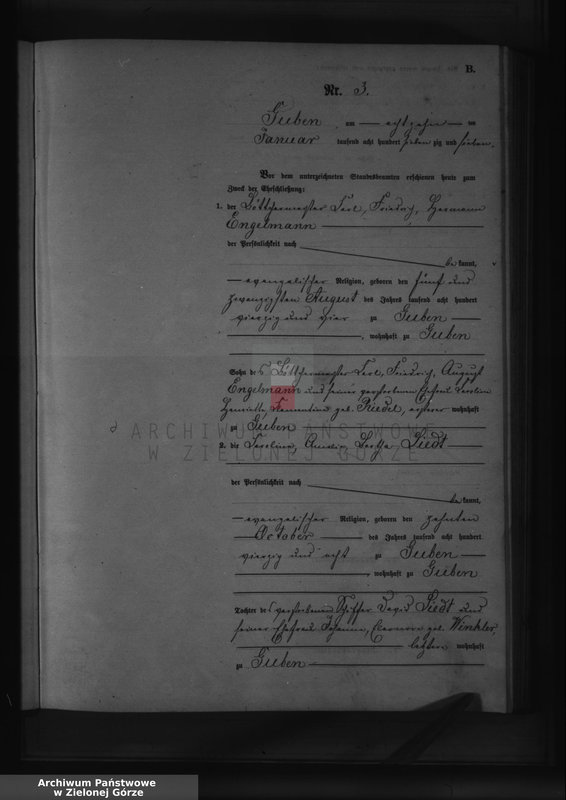 B.
Nr. 3.
Guben am achtzehn ten
Januar tausend acht hundert sieben zig und sieben.
Vor dem unterzeichneten Standesbeamten erschienen heute zum
Zweck der Eheschließung:
1. der Böttchermeister Carl, Friedrich, Hermann
Engelmann
der Persönlichkeit nach
be kannt,
evangelischer Religion, geboren den fünf und
zwanzigsten August des Jahres tausend acht hundert
vierzig und vier zu Guben
, wohnhaft zu Guben
Sohn des Böttchermeister Carl, Friedrich, August
Engelmann und seiner verstorbenen Ehefrau Caroline
Henriette, geb. Riedel, ersterer wohnhaft
zu Guben
ARCHIWUM PAŃSTWOWE
W ZIELONEJ GÓRZE
2. die Caroline, Amalie, Bertha Liedt
der Persönlichkeit nach
be kannt,
evangelischer Religion, geboren den zehnten
October des Jahres tausend acht hundert
vierzig und acht zu Guben
, wohnhaft zu Guben
Tochter des verstorbenen David Liedt und
seiner Ehefrau Johanne, Eleonore geb. Winkler,
letztere wohnhaft
zu Guben
Archiwum Państwowe
w Zielonej Górze